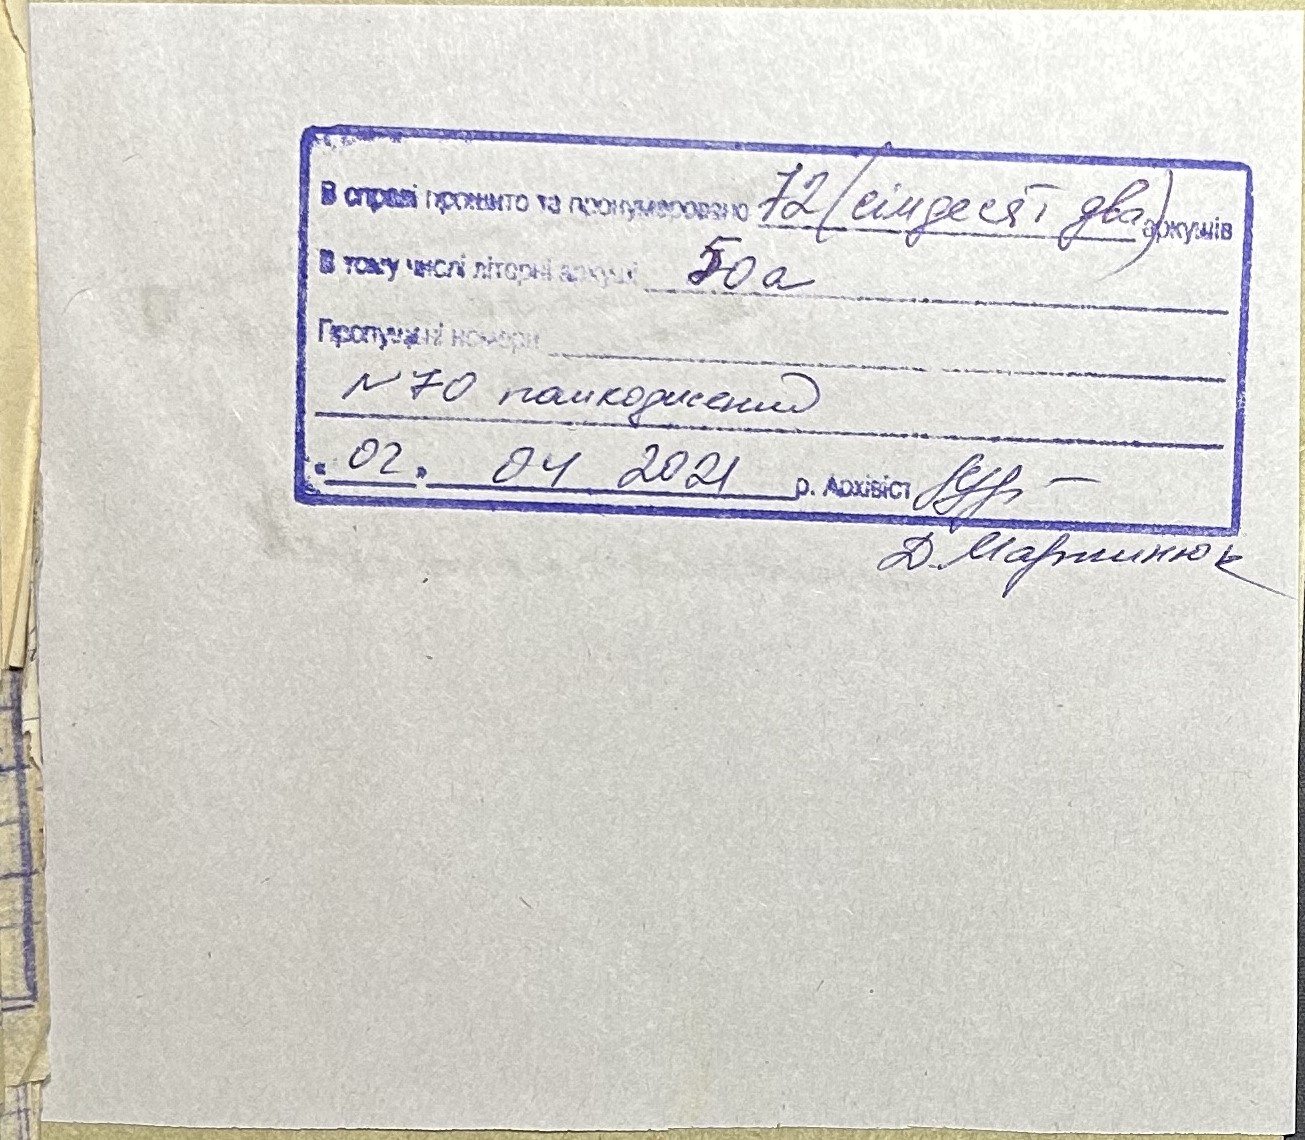 В справі прошито та пронумеровано 72 (сімдесят два) аркушів
В тому числі літерні аркуші 50а
Пропущені номери
№70 пошкоджений
"02" 04 2021 р. Архівіст
Д. Мартинюк